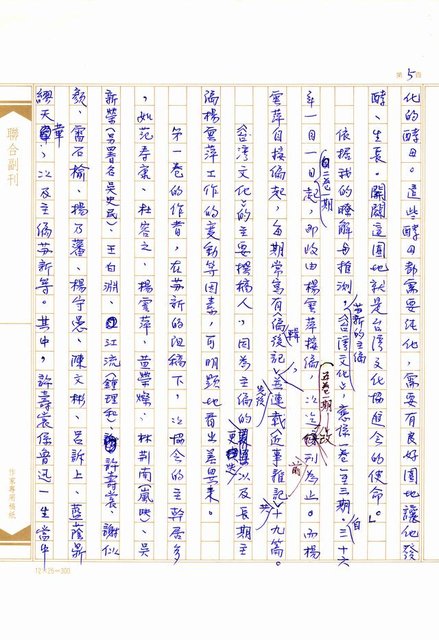 第5頁
化的酵母。這些酵母都需要純化,需要有良好園地讓他發
酵、生長。開闢這園地就是台灣文化協進會的使命。」
依據我的瞭解與推測,蘇新的主編《台灣文化》,應係一卷一至三期。三十六
年一月一日起(自二卷一期),即改由楊雲萍接編,以迄(五卷一期)停刊為止。而楊
雲萍自接編起,每期常寫有〈編輯後記〉,並先後連載〈近事雜記〉共十九篇。
《台灣文化》的主要撰稿人,因為主編的更迭以及長期主
編楊雲萍工作的變動等因素,可明顯地看出差異來。
第一卷的作者,在蘇新的組稿下,以協會的主幹居多
,如范壽康、杜容之、楊雲萍、黃榮燦、林荊南(嵐映)、吳
新榮(另署名吳史民)、王白淵、江流(鍾理和)、許壽裳、謝似
顏、雷石榆、楊乃藩、楊守愚、陳文彬、呂訴上、藍蔭鼎
繆天華、以及主編蘇新等。其中,許壽裳係魯迅一生當中
聯合副刊
作家專用稿紙
12×25=300